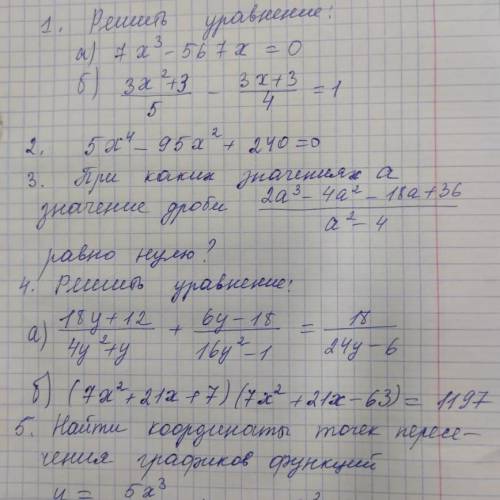 1. Решить уравнение:
а) 7x³ - 567x = 0
б) (3x²+3)/5 - (3x+3)/4 = 1
2. 5x⁴ - 95x² + 240 = 0
3. При каких значениях а
значение дроби (2a³ - 4a² - 18a + 36)/(a² - 4)
равно нулю?
4. Решить уравнение:
а) (18y + 12)/(4y² + y) + (6y - 18)/(16y² - 1) = 18/(24y - 6)
б) (7x² + 21x + 7)(7x² + 21x - 63) = 1197
5. Найти координаты точек пересе-
чения графиков функций
5x³